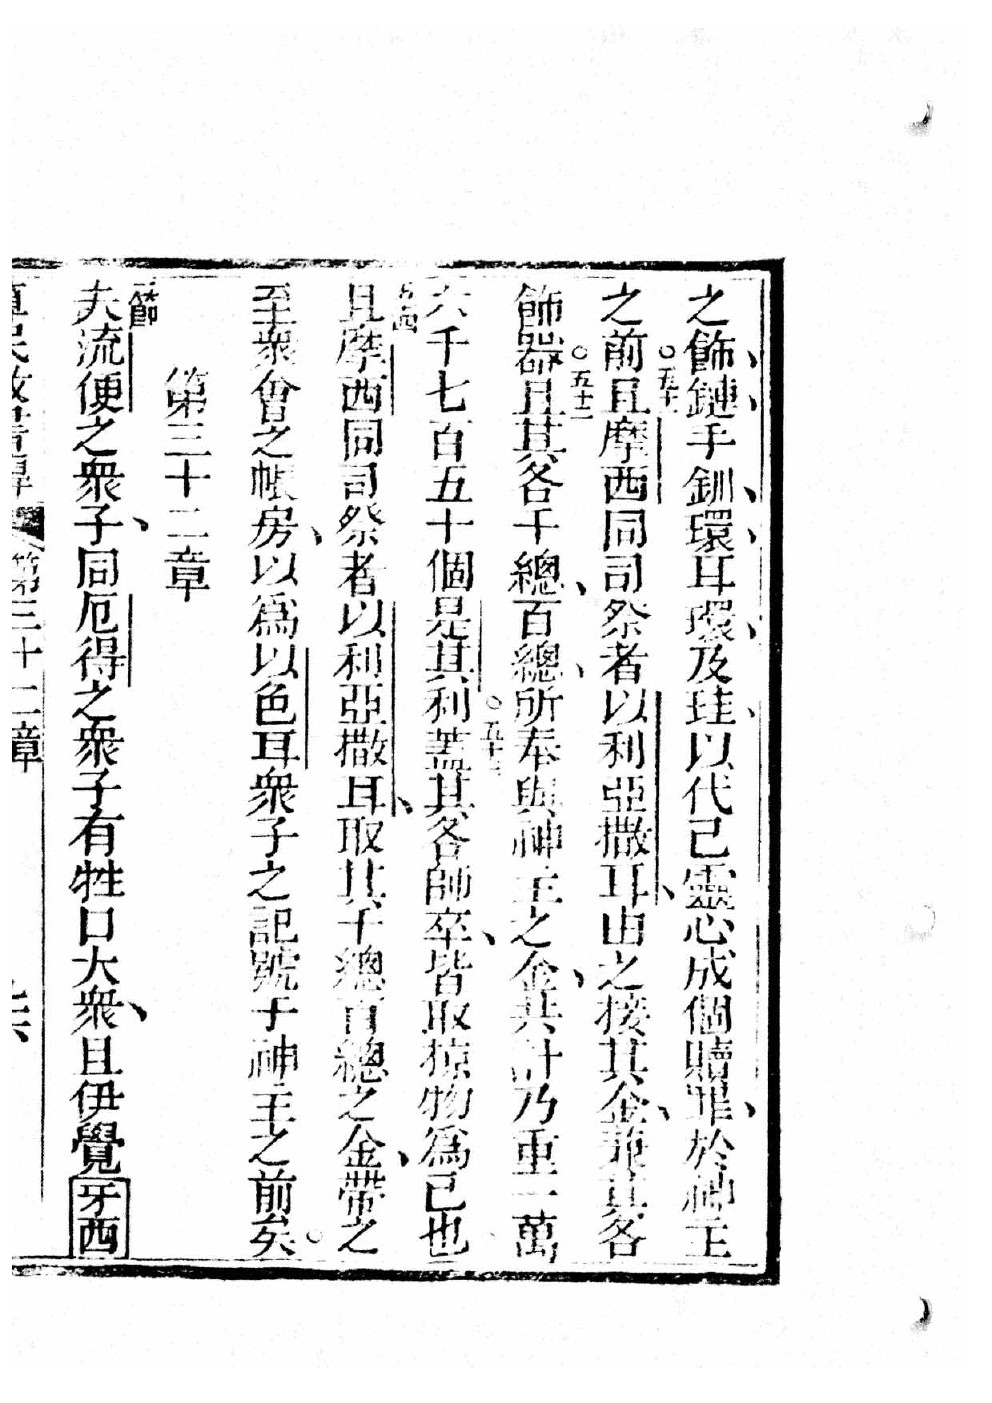 之飾鏈手釧環耳環及珪以代己靈心成個贖罪於神主
之前○五十一且摩西同司祭者以利亞撒耳由之接其金兼其各
飾器○五十二且其各千總百總所奉與神主之金共計乃重一萬
六千七百五十個是其利○五十三蓋其各師卒皆取掠物為己也○
五四且摩西同司祭者以利亞撒耳取其千總百總之金帶之
至衆會之帳房以為以色耳衆子之記號于神主之前矣○
第三十二章
一節夫流便之衆子同厄得之衆子有牲口大衆且伊覺牙西
第三十二章